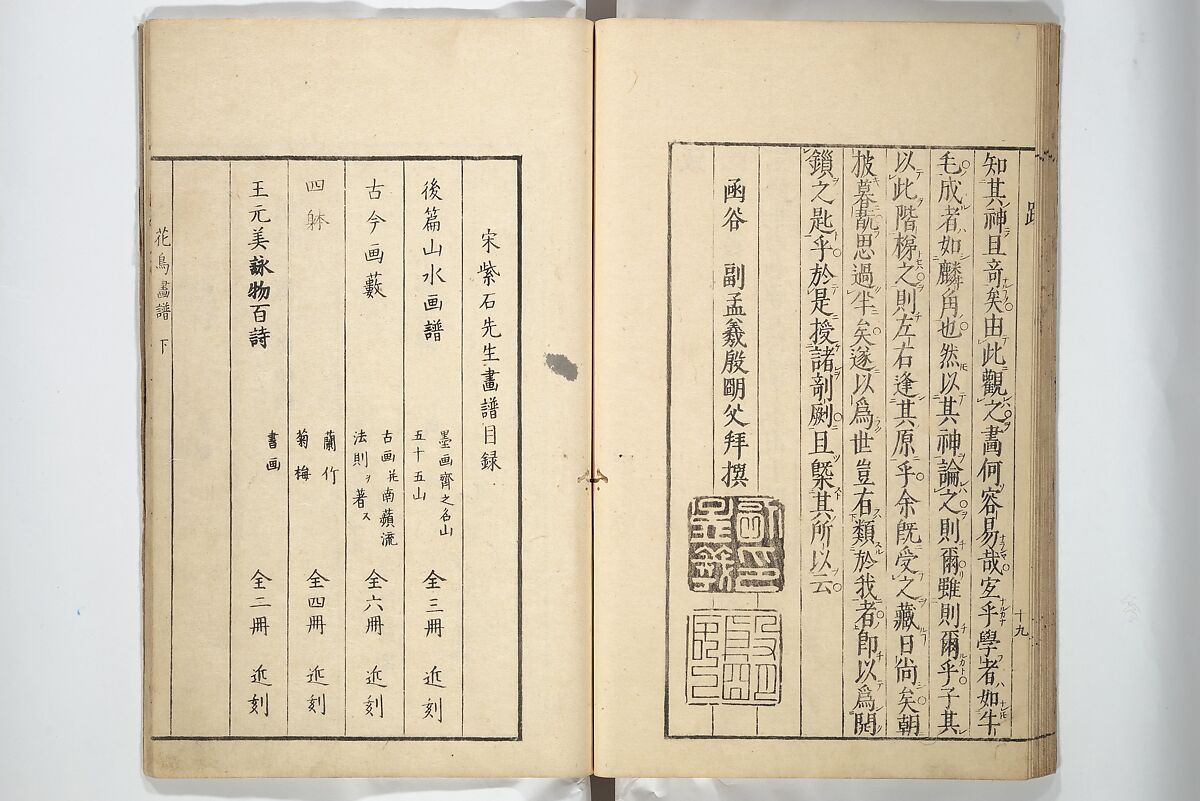 跋
知其神且奇矣由此觀之畫何容易哉宜乎學者如牛
毛成者如麟角也然以其神論之則爾雖則爾乎子其
以此階梯之則左右逢其原乎余既受之藏日尚矣朝
披暮翫思過半矣遂以爲世豈有類於我者即以爲開
鎖之匙乎於是授諸剞劂且槩其所以云
函谷 副孟羲殷明父拜撰
十九
宋紫石先生畫譜目録
後篇山水画譜 墨画齊之名山 五十五山 全三冊 近刻
古今画藪 古画并南蘋流 法則ヲ著ス 全六冊 近刻
四躰 蘭竹 菊梅 全四冊 近刻
王元美詠物百詩 書画 全二冊 近刻
花鳥畫譜 下